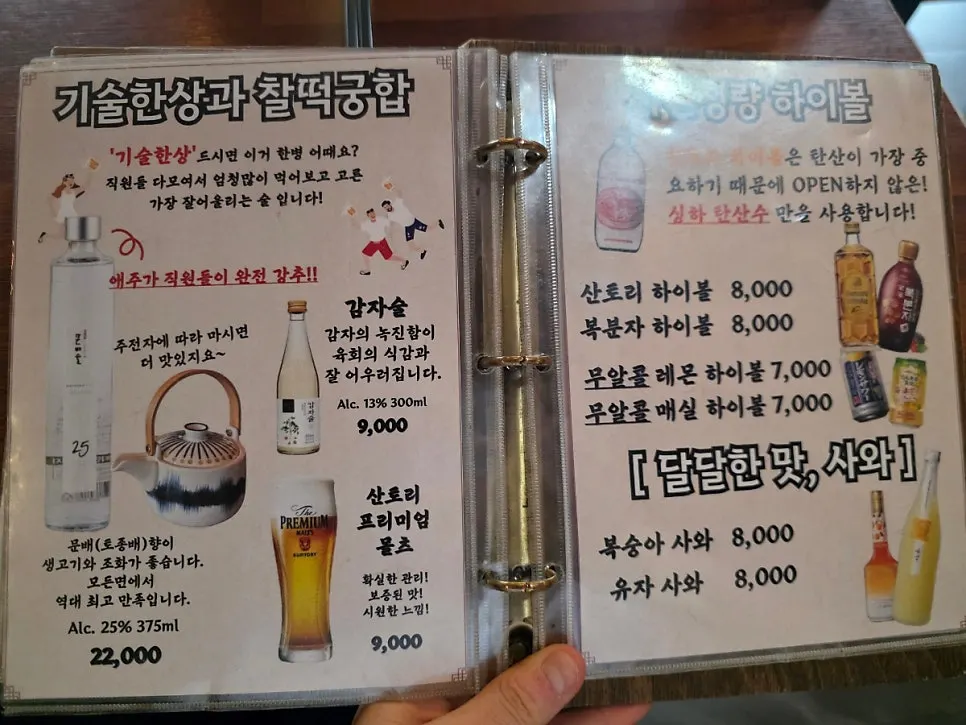 기술한상과 찰떡궁합
'기술한상'드시면 이거 한병 어때요?
직원들 다모여서 엄청많이 먹어보고 고른
가장 잘어울리는 술 입니다!
애주가 직원들이 완전 강추!!
주전자에 따라 마시면
더 맛있지요~
문배술
25
문배(토종배)향이
생고기와 조화가 좋습니다.
모든면에서
역대 최고 만족입니다.
Alc. 25% 375ml
22,000
감자술
감자의 녹진함이
육회의 식감과
잘 어우러집니다.
Alc. 13% 300ml
9,000
감자술
The
PREMIUM
MALT'S
SUNTORY
산토리
프리미엄
몰츠
확실한 관리!
보증된 맛!
시원한 느낌!
9,000
하이볼
은 탄산이 가장 중
요하기 때문에 OPEN하지 않은!
싱하 탄산수 만을 사용합니다!
산토리 하이볼 8,000
복분자 하이볼 8,000
무알콜 레몬 하이볼 7,000
무알콜 매실 하이볼 7,000
복분자
[ 달달한 맛, 사와 ]
복숭아 사와 8,000
유자 사와 8,000